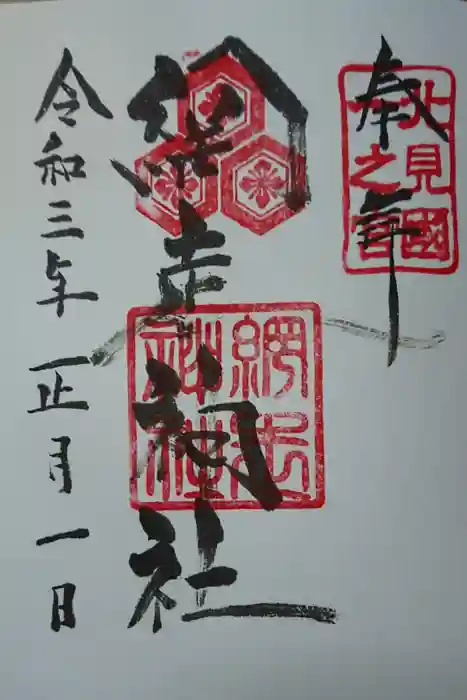 奉拝
北見國
一之宮
網走神社
網走
神社
令和三年正月一日